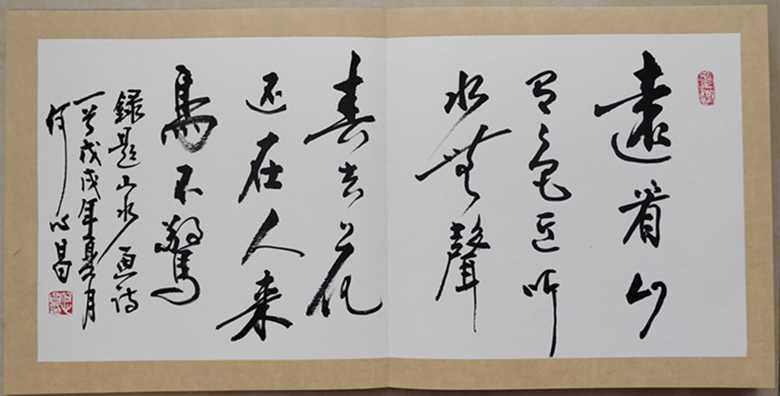 遠看山
有色近听
水無聲
春去花
还在人来
鳥不驚
録題山水画诗
一首戊戌年夏月
何心昌